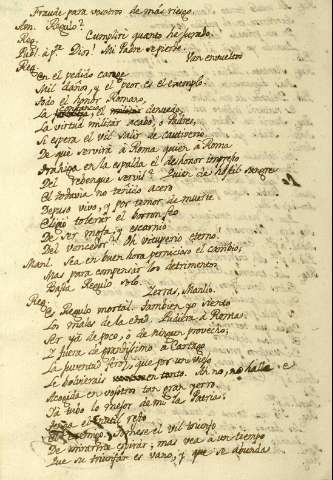 Fraude para vosotros de más riesgo.
Am. Regulo?
Reg. Cumpliré quanto he jurado.
Pub.
Reg. Van envueltos
En el pedido cange
Mil daños, y el peor es el exemplo.
Todo el honor Romano,
La el denuedo,
La virtud militar acabó, o Padres,
Si espera el vil salir de cautiverio.
De qué servirá à Roma quien à Roma
Trahiga en la espalda el deshonor impreso
Del rebenque servil? Quien de hostil sangre
El todavia no teñido acero
Depuso vivo, y por temor de muerte
Eligió tolerar el borron feo
De ser mofa, y escarnio
Del vencedor? Oh vituperio eterno!
Manl. Sea en buen hora pernicioso el cambio;
Mas para compensar los detrimentos
Basta Regulo solo.
Reg. Yerras, Manlio.
Es Regulo mortal. Tambien yo siento
Los males de la edad. Pudiera à Roma
Ser yá de poco, o de ningun provecho;
I fuera de grandisimo à Cartago
La juventud feroz, que por un viejo
Se bolveriais en tanto. Ah no, no halle
Acogida en vosotros tan gran yerro.
Ya tubo lo mejor de mi la Patria;
el resto
el vil triunfo
De mirarme espirar, mas vea à un tiempo
Que su triunfar es vano, y que se abunda